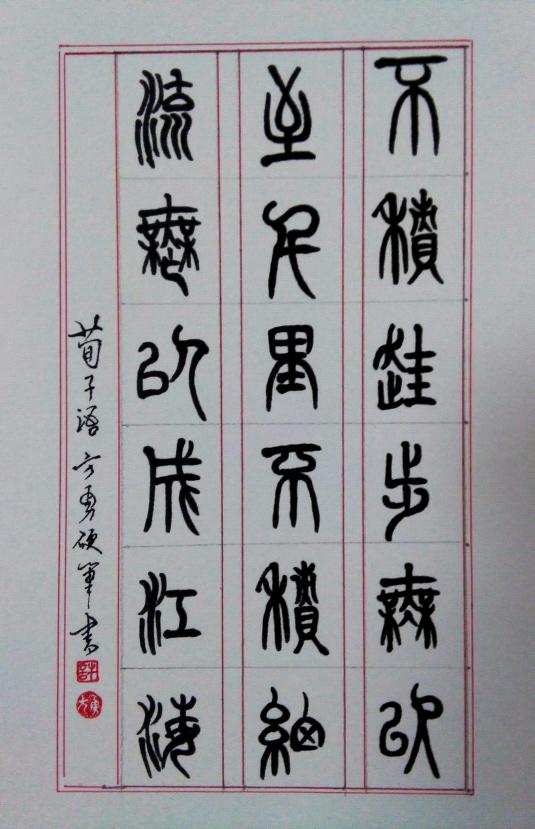 不積跬步無以
至千里不積細
流無以成江海
荀子語 方勇硬筆書